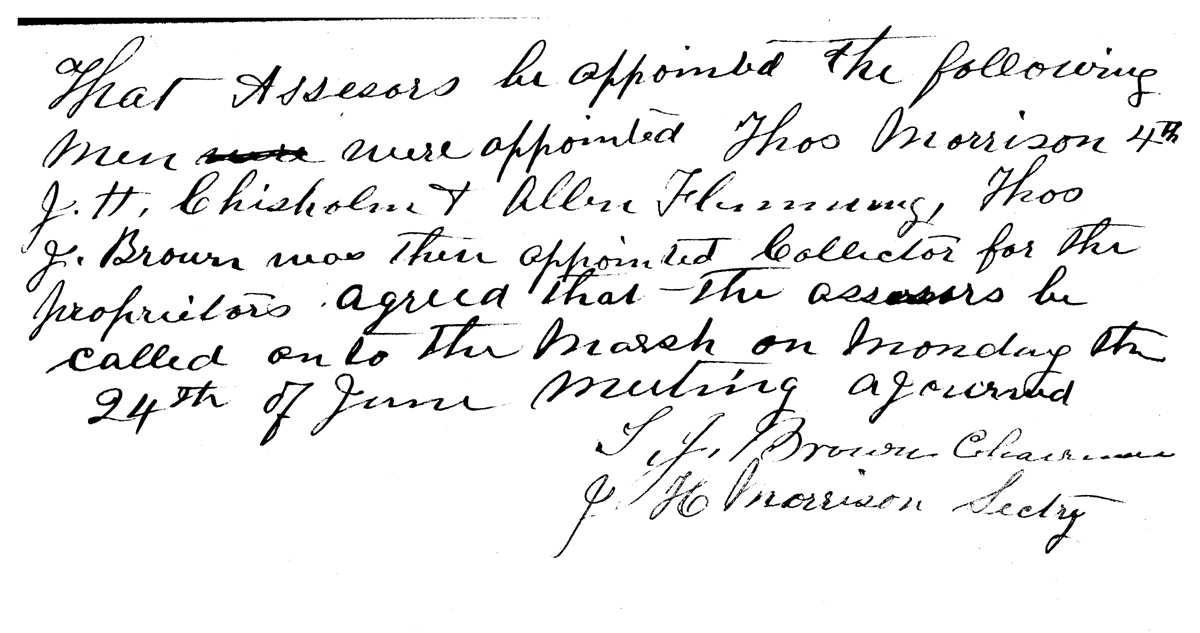 That Assesors be appointed the following
Men were were appointed Thos Morrison 4th
J. H. Chisholm & Allen Flemming, Thos
J. Brown was then appointed Collector for the
proprietors agreed that the assesors be
called on to the Marsh on Monday the
24th of June Meeting ajourned
T. J. Brown Chairman
J H Morrison Sectry